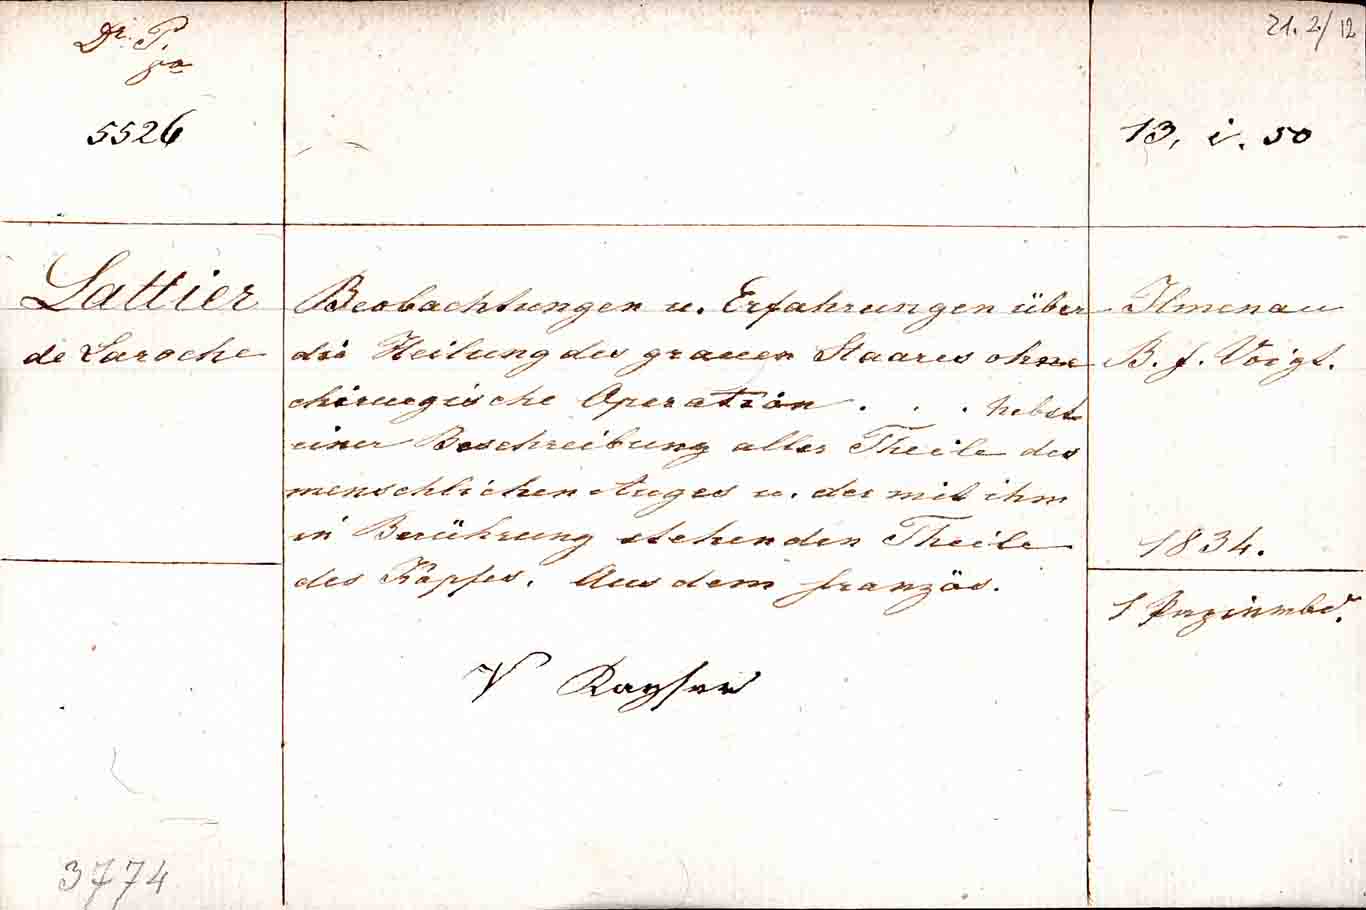 Dr. P.
21. 2/12
5526
13, i. 50
Lattier
de Laroche
Beobachtungen u. Erfahrungen über
die Heilung des grauen Staares ohne
chirurgische Operation . . . nebst
einer Beschreibung aller Theile des
menschlichen Auges u. der mit ihm
in Berührung stehenden Theile
des Kopfes. Aus dem französ.
Ilmenau
B. f. Voigt.
1834.
1
V
3774